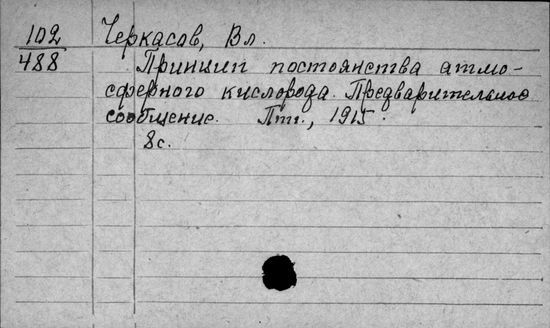 102
488
Черкасов, Вл.
Принцип постоянства атмо-
сферного кислорода. Предварительное
сообщение. Птг., 1915.
8с.